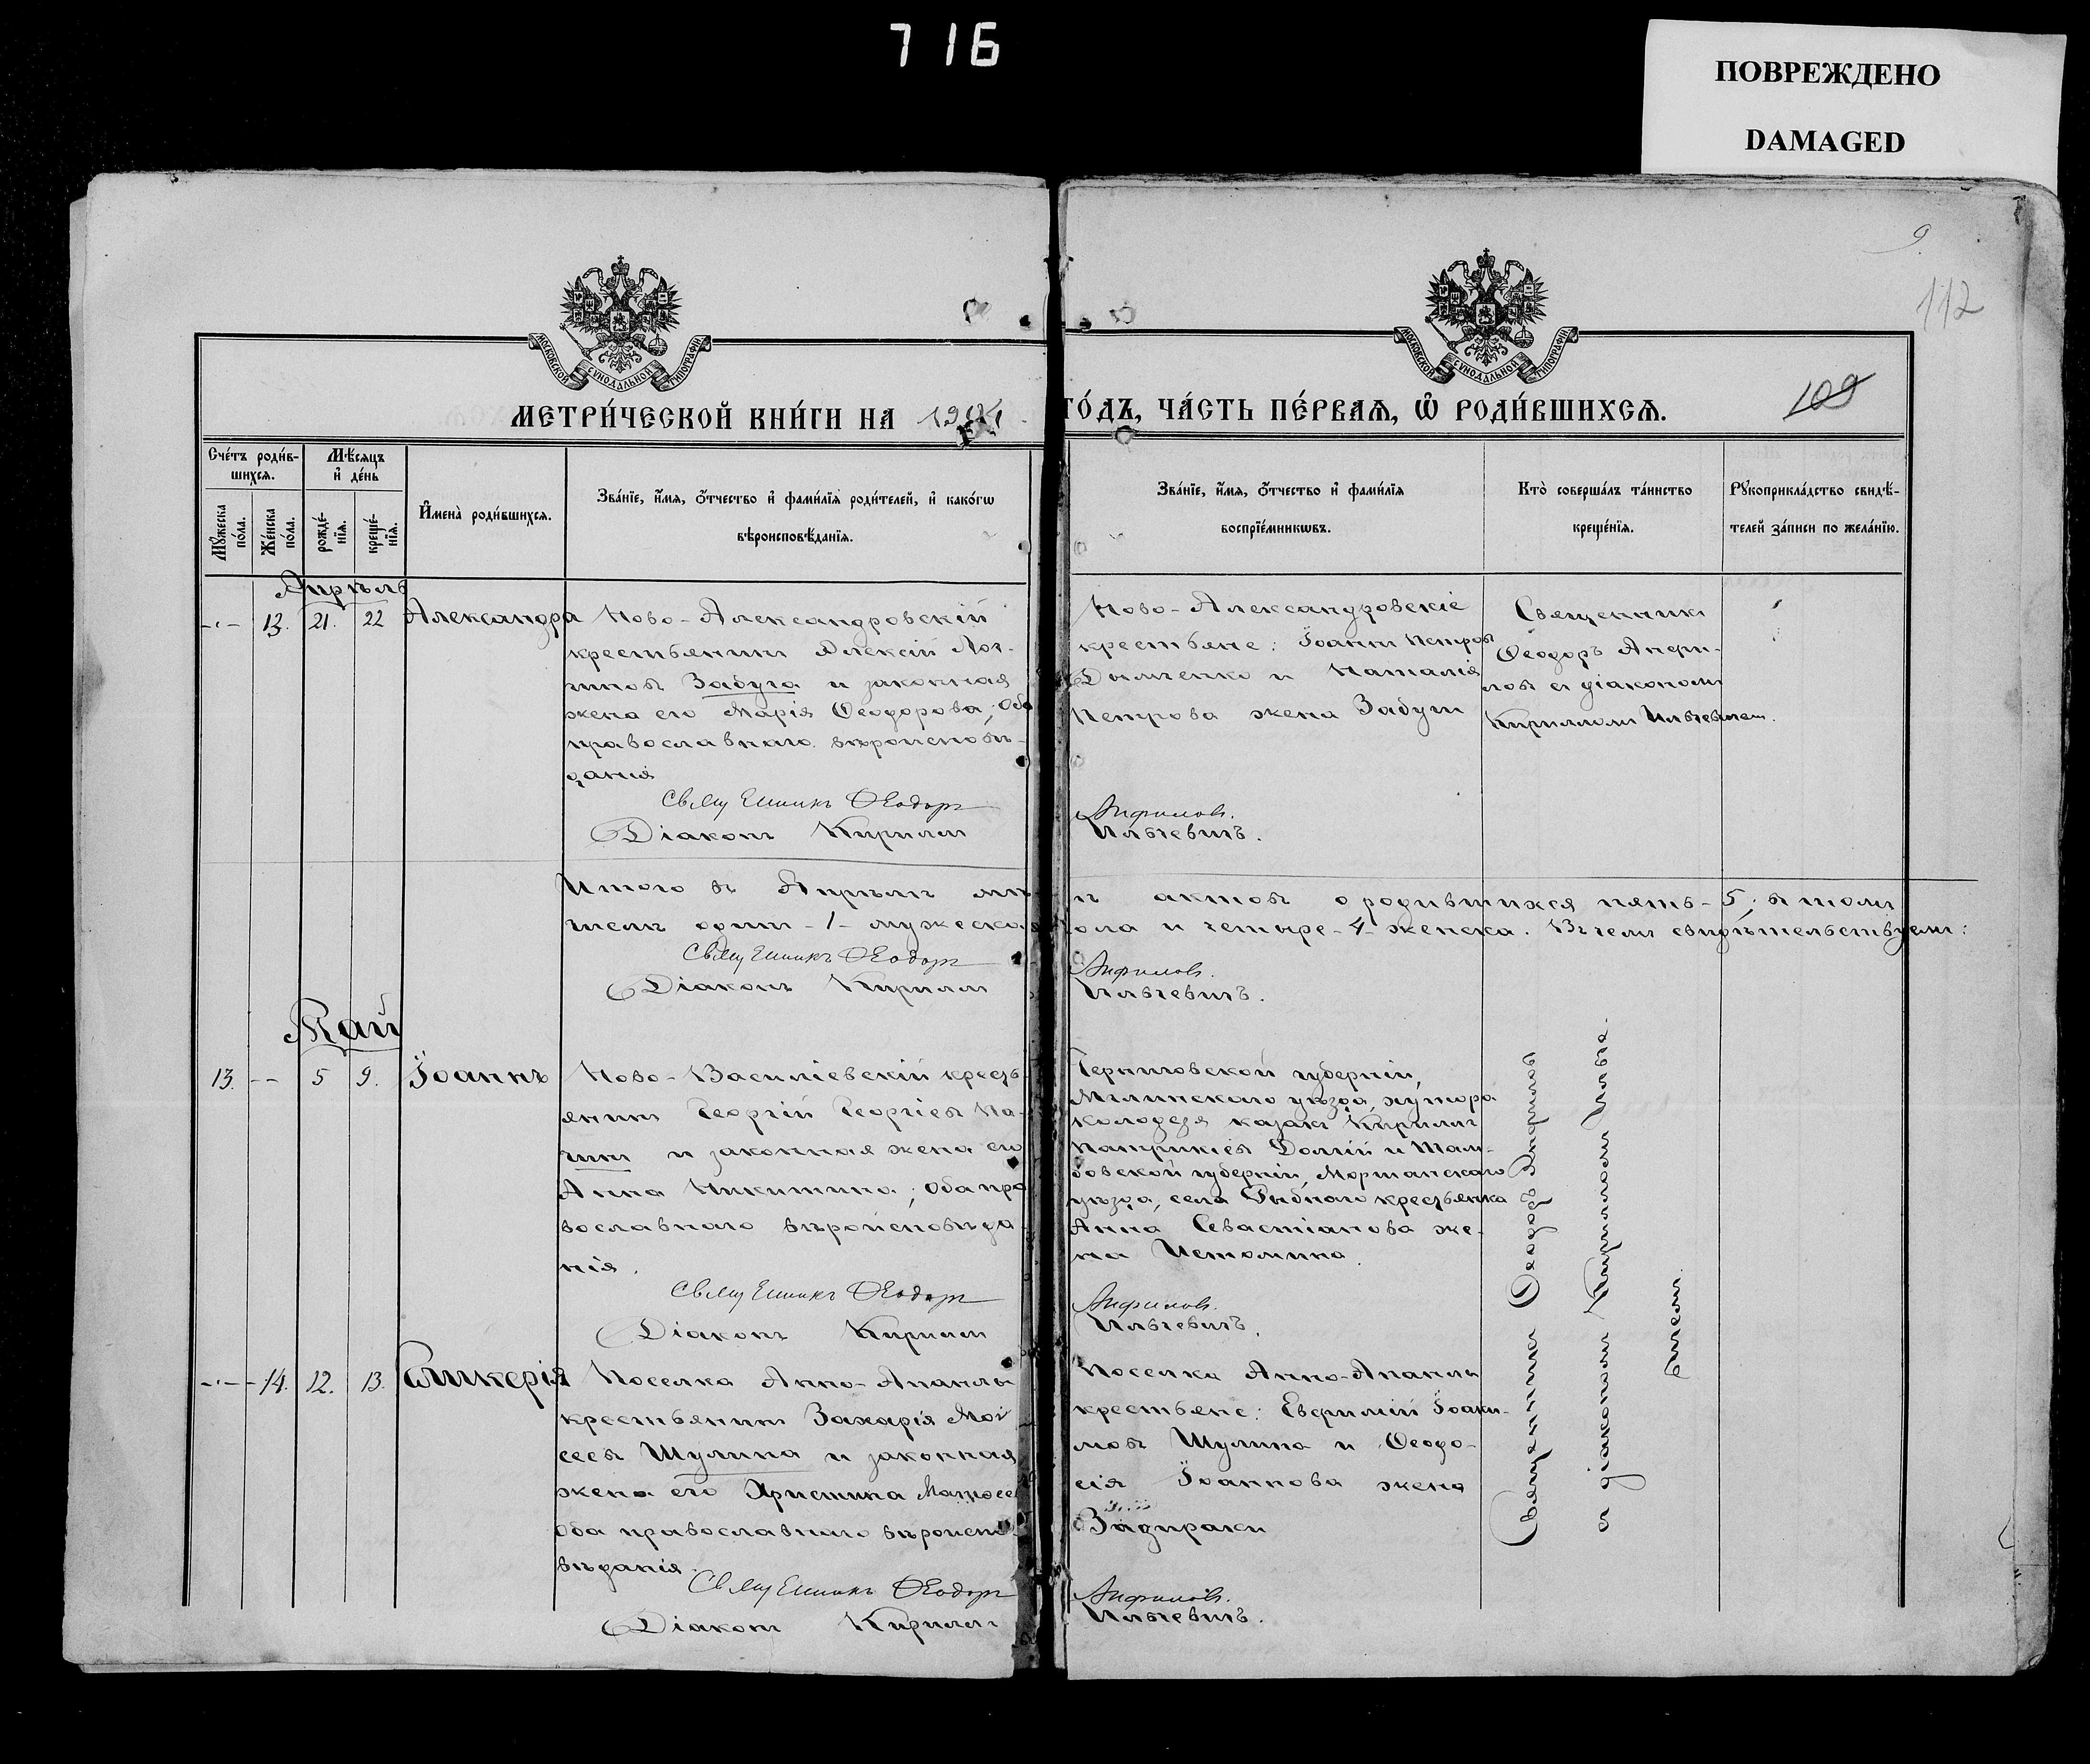 716
ПОВРЕЖДЕНО
DAMAGED
9
112
109
МОСКОВСКОЙ СѴНОДАЛЬНОЙ ТИПОГРАФІИ
МОСКОВСКОЙ СѴНОДАЛЬНОЙ ТИПОГРАФІИ
МЕТРИ́ЧЕСКОЙ КНИ́ГИ НА 1904
ГО́ДЪ, ЧА́СТЬ ПЕ́РВАѦ, Ѡ҆ РОДИ́ВШИХСѦ.
Сче́тъ роди́в-
шихсѧ.
Мѣ́сяцъ
и҆ де́нь
Мꙋ́жеска
по́ла.
Же́нска
по́ла.
рожде́-
нїѧ.
креще́-
нїѧ.
И҆мена̀ роди́вшихсѧ.
Зва́нїе, и҆́мѧ, ѻ҆́тчество и҆ фами́лїѧ роди́телей, и҆ како́гѡ
вѣроисповѣ́данїѧ.
Зва́нїе, и҆́мѧ, ѻ҆́тчество и҆ фами́лїѧ
воспрїе́мникѡвъ.
Кто̀ соверша́лъ та́инство
креще́нїѧ.
Рꙋкоприкла́дство свидѣ́-
телей за́писи по жела́нїю.
Апрѣль
13. 21. 22 Александра
Ново-Александровскій
крестьянинъ Алексій Лог-
гиновъ Забуга и законная
жена его Марія Ѳеодорова, оба
православнаго вѣроисповѣ-
данія
Священникъ Ѳеодоръ
Діаконъ Кириллъ
Ново-Александровскіе
крестьяне: Іоаннъ Петровъ
и Наталія
Петрова жена Забуги
Анфиловъ.
Ильчевичъ.
Священникъ
Ѳеодоръ Анфи-
ловъ съ діакономъ
Кирилломъ Ильчевичем.
Итого въ Апрѣлѣ мѣ-
цѣ актовъ о родившихся пять - 5; въ томъ
числѣ одинъ - 1 - мужеска
пола и четыре - 4 - женска. Въ чемъ свидѣтельствуемъ:
Священникъ Ѳеодоръ
Анфиловъ.
Діаконъ Кириллъ
Ильчевичъ.
Май
13. -- 5 9. Іоаннъ
Ново-Василіевскій кресть-
янинъ Георгій Георгіевъ Па-
и законная жена его
Анна Никитина; оба пра-
вославнаго вѣроисповѣда-
нія.
Священникъ Ѳеодоръ
Діаконъ Кириллъ
Черниговской губерніи,
Мглинскаго уѣзда, хутора
Колодезя казакъ Кириллъ
Патрикіевъ Долгій и Там-
бовской губерніи, Моршанскаго
уѣзда, села Рыбнаго крестьянка
Анна Севастіанова же-
на Истомина.
Анфиловъ.
Ильчевичъ.
Священникъ Ѳеодоръ Анфиловъ
съ діакономъ Кирилломъ Ильче-
вичемъ.
14. 12. 13. Гликерія
Поселка Анно-Ананьи
крестьянинъ Захарія Мой-
сеевъ Шулика и законная
жена его Христина
оба православнаго вѣроиспо-
вѣданія.
Священникъ Ѳеодоръ
Діаконъ Кириллъ
Поселка Анно-Ананьи
крестьяне: Евфимій Іоаки-
мовъ Шулика и Ѳеодо-
сія Іоаннова жена
Задираки
Анфиловъ.
Ильчевичъ.